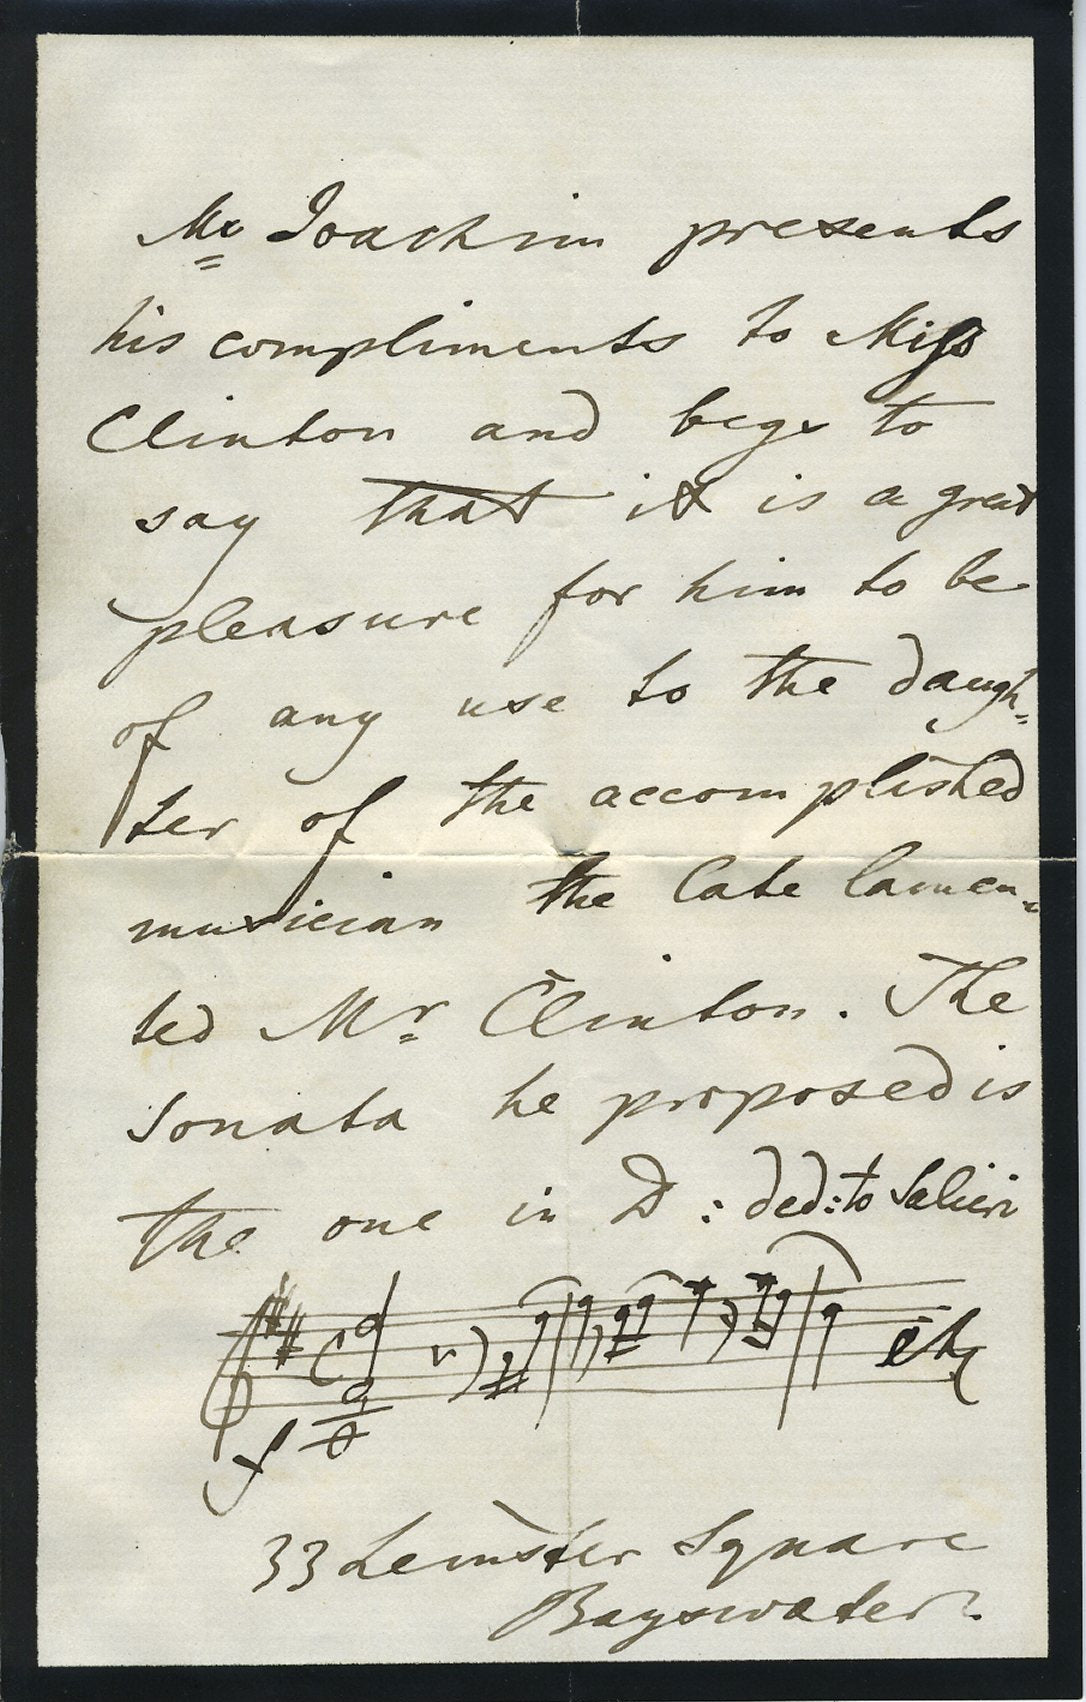 Mr Joachim presents
his compliments to Miss
Clinton and begs to
say that it is a great
pleasure for him to be
of any use to the daugh=
ter of the accomplished
musician the late lamen=
ted Mr Clinton. The
Sonata he proposed is
the one in D : ded: to Salieri
f
etc
33 Leinster Square
Bayswater.